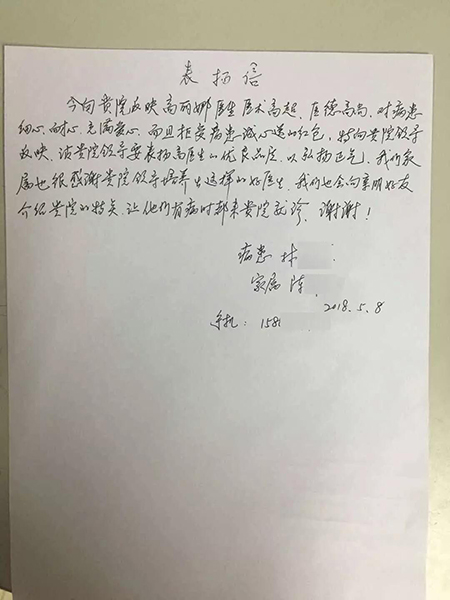 表扬信
今向贵院反映高丽娜医生医术高超、医德高尚、对病患
细心、耐心、充满爱心、而且拒受病患诚心送的红包,特向贵院领导
反映、请贵院领导要表扬高医生的优良品质、以弘扬正气、我们家
属也很感谢贵院领导培养出这样的好医生、我们也会向亲朋好友
介绍贵院的特点、让他们有病时都来贵院就诊、谢谢!
病患 林
家属 陈
2018.5.8
手机: 1581